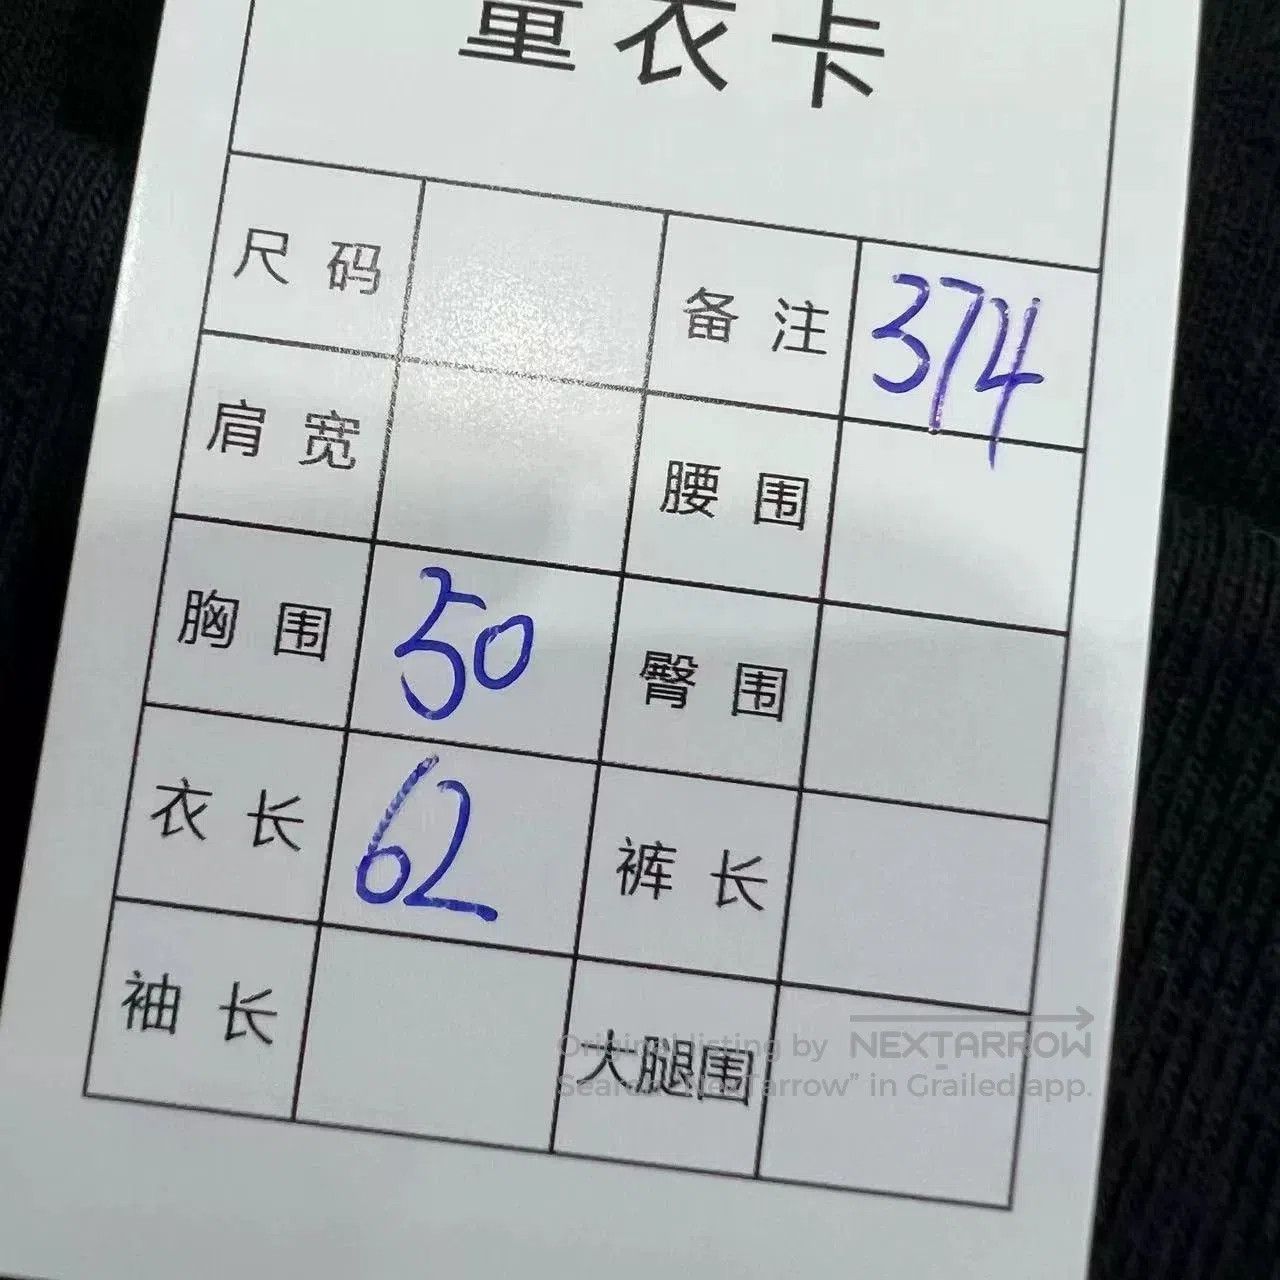 量衣卡
尺码 备注 374
肩宽 腰围
胸围 50 臀围
衣长 62 裤长
袖长 大腿围
Original listing by NEXTARROW
Search "NexTarrow" in Grailed app.